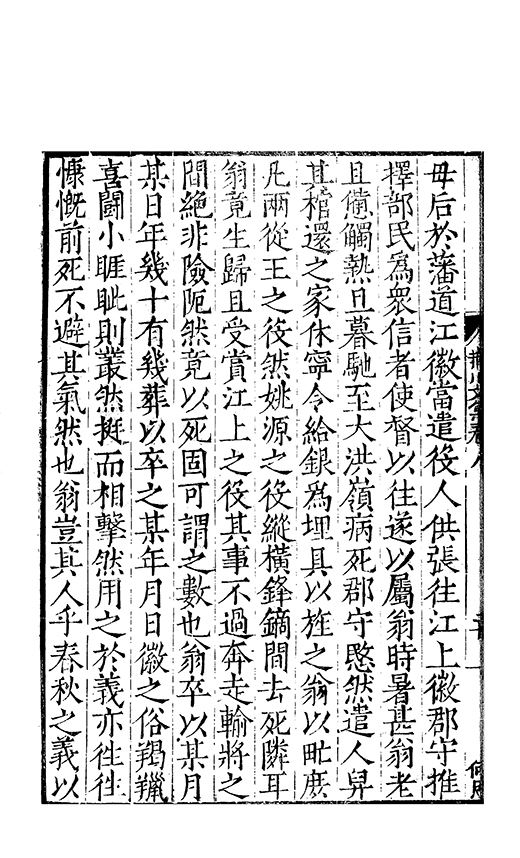 毋后於藩道江徽當遣役人供張往江上徽郡守推
擇部民爲衆信者使督以往遂以屬翁時暑甚翁老
且憊觸熱旦暮馳至大洪嶺病死郡守愍然遣人舁
其棺還之家休寧令給銀爲埋具以旌之翁以甿庶
凡兩從王之役然姚源之役縱橫鋒鏑間去死隣耳
翁竟生歸且受賞江上之役其事不過奔走輸將之
間絶非險阨然竟以死固可謂之數也翁卒以某月
某日年幾十有幾葬以卒之某年月日徽之俗羯羠
喜鬬小睚眦則叢然挺而相擊然用之於義亦往往
慷慨前死不避其氣然也翁豈其人乎春秋之義以